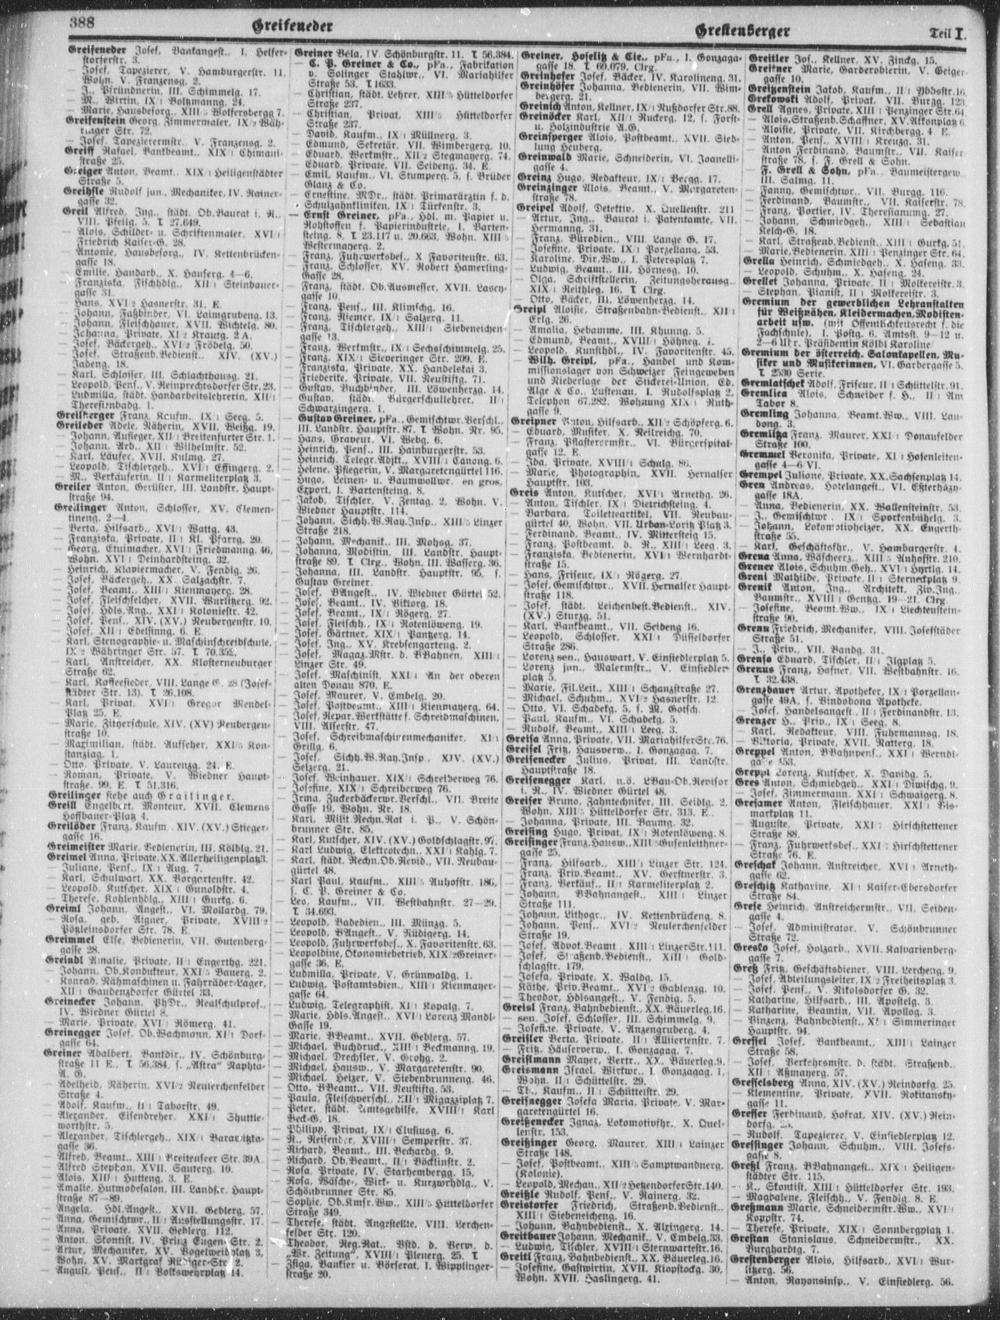 388
Greifeneder
Greftenberger
Teil I.
Greifeneder Josef, Bankangest., I. Helfer-
storferstr. 3.
— Josef, Tapezierer, V. Hamburgerstr. 11,
Wohn. V. Franzensg. 2.
— J., Pfründnerin, III. Schimmelg. 17.
— M., Wirtin, IX Volkmanng. 24.
— Marie, Hausbesorg., XIII Wolfersbergg 7.
Greifenstein Georg, Zimmermaler, IX Wäh-
ringer Str. 72.
— Josef, Tapezierermstr., V. Franzensg. 2.
Greiff Rafael, Bankbeamt., XIX Chimani-
straße 25.
Greiger Anton, Beamt., XIX Heiligenstädter
Straße 5.
Greihsle Rudolf jun., Mechaniker, IV. Rainer-
gasse 32.
Greil Alfred, Ing., städt. Ob.Baurat i. R.,
VIII. Pfeilg. 5. T 27.649.
— Alois, Schilder- u. Schriftenmaler, XVI
Friedrich Kaiser-G. 28.
— Antonie, Hausbesorg., IV. Kettenbrücken-
gasse 18.
— Emilie, Handarb., X. Hauserg. 4—6.
— Franziska, Fischhdlg., XII Steinbauer-
gasse 31.
— Hans, XVI/2 Hasnerstr. 31. E.
— Johann, Faßbinder, VI. Laimgrubeng. 13.
— Johann, Fleischhauer, XVII. Wichtelg. 80.
— Johanna, Private, XI/2 Krautg. 2 A.
— Josef, Bäckergeh., XV/2 Fröbelg. 50.
— Josef, Straßenb.Bedienst., XIV. (XV.)
Jadeng. 18.
— Karl, Schlosser, III. Schlachthausg. 21.
— Leopold, Pens., V. Reinprechtsdorfer Str. 23.
— Ludmilla, städt. Handarbeitslehrerin, XII
Theresienbadg. 1.
Greilberger Franz, Kaufm., IX Seeg. 5.
Greileder Adele, Näherin, XVI. Weißg. 19.
— Johann, Aufleger, XII Breitenfurter Str. 1.
— Johann, Arb., XII Wilhelmstr. 52.
— Karl, Läufer, XVII. Kulmg. 27.
— Leopold, Tischlergeh., XVI Effingerg. 2.
— M., Verkäuferin, II Karmeliterplatz 3.
Greiler Anton, Gerüster, III. Landstr. Haupt-
straße 94.
Greilinger Anton, Schlosser, XV. Clemen-
tineng. 2—4.
— Berta, Hilfsarb., XVI Wattg. 43.
— Franziska, Private, II Kl. Pfarrg. 20.
— Georg, Etuimacher, XVI Friedmanng. 46,
Wohn. XVI Deinhardsteing. 32.
— Heinrich, Klaviermacher, V. Fendig. 26.
— Josef, Bäckergeh., XX. Salzachstr. 7.
— Josef, Beamt., XIII Kienmayerg. 28.
— Josef, Fleischselcher, XVII. Wurlitzerg. 92.
— Josef, Hdls.Ang., XXI Koloniestr. 42.
— Josef, Pens., XIV. (XV.) Reubergenstr. 10.
— Josef, XII Edelsinng. 6. E.
— Karl, Stenographie- u. Maschinschreibschule,
IX/2 Währinger Str. 57. T 70.352.
— Karl, Anstreicher, XX. Klosterneuburger
Straße 62.
— Karl, Kaffeesieder, VIII. Lange G. 28 (Josef-
städter Str. 13). T 26.108.
— Karl, Privat, XVI Gregor Mendel-
Platz 25. E.
— Marie, Zitherschule, XIV. (XV.) Reubergen-
straße 10.
— Maximilian, städt. Aufseher, XXI Kon-
stanziag. 1.
— Otto, Private, V. Laurenzg. 24. E.
— Roman, Private, V. Wiedner Haupt-
straße. 99. E. T 51.316.
Greillinger siehe auch Grailinger.
Greill Engelbert, Monteur, XVII. Clemens
Hoffbauer-Platz 4.
Greilöder Franz, Kaufm., XIV. (XV.) Stieger-
gasse 16.
Greimeister Marie, Bedienerin, III. Kölblg. 21.
Greimel Anna, Private, XX. Allerheiligenplatz 3.
— Juliane, Pens., IX Aug. 7.
— Karl, Schulwart, XX. Vorgartenstr. 42.
— Leopold, Kutscher, XIX Gunoldstr. 4.
— Therese, Kohlenhdlg., XIII Gurkg. 6.
Greiml Johann, Angest., VI. Mollardg. 79.
— Rosa, geb. Aigner, Private, XVIII
Pötzleinsdorfer Str. 78. E.
Greimmel Else, Bedienerin, VII. Gutenberg-
gasse 28.
Greindl Amalie, Private, II Engerthg. 221.
— Johann, Ob.Kondukteur, XXI Bauerg. 2.
— Konrad, Nähmaschinen u. Fahrräder-Lager,
XII Gaudenzdorfer Gürtel 33.
Greinecker Johann, PhDr., Realschulprof.,
IV. Wiedner Gürtel 8.
— Marie, Private, XVI Römerg. 41.
Greinegger Josef, Ob.Wachmann, XI Dorf-
gasse 64.
Greiner Adalbert, Bankdir., IV. Schönburg-
straße 11 E., T 56.384, f. „Astra“ Naphta-
A. G.
— Adelheid, Näherin, XVI/2 Neulerchenfelder
Straße 4.
— Adolf, Kaufm., II Taborstr. 49.
— Alexander, Eisendreher, XXI Shuttle-
worthstr. 5.
— Alexander, Tischlergeh., XIX Barawitzka-
gasse 36.
— Alfred, Beamt., XIII Breitenseer Str. 39A.
— Alfred Stephan, XVII. Sauterg. 10.
— Alois, XIII Hutteng. 3. E.
— Amalie, Hutmodesalon, III. Landstr. Haupt-
straße 87—89.
— Angela, Hdl.Angest., XVII. Geblerg. 57.
— Anna, Gemischtw., II Ausstellungsstr. 17.
— Anna, Private, XVII. Geblerg. 112.
— Anton, Skontist, IV. Prinz Eugen-Str. 2.
— Artur, Mechaniker, XV. Vogelweidplatz 3,
Wohn. XV. Markgraf Rüdiger-Str. 2.
— August, Pens., II Volkswehrplatz 14.
Greiner Béla, IV. Schönburgstr. 11. T 56.384.
— C. P. Greiner & Co., pFa., Fabrikation
v. Solinger Stahlwr., VI. Mariahilfer
Straße 53. T 1633.
— Christian, städt. Lehrer, XIII Hütteldorfer
Straße 237.
— Christian, Privat, XIII Hütteldorfer
Straße 237.
— David, Kaufm., IX Müllnerg. 3.
— Edmund, Sekretär, VII. Wimbergerg. 10.
— Eduard, Werkmstr., XII Stegmayerg. 74.
— Eduard, Private, VII. Seideng. 34. E.
— Emil, Kaufm., VI. Stumperg. 5, f. Brüder
Glanz & Co.
— Ernestine, MDr., städt. Primarärztin f. d.
Schulzahnkliniken, IX Türkenstr. 3.
— Ernst Greiner, pFa., Hdl. m. Papier u.
Rohstoffen f. Papierindustrie, I. Barten-
steing. 8. T 23.117 u. 20.663, Wohn. XIII
Westermayerg. 2.
— Franz, Fuhrwerksbes., X. Favoritenstr. 63.
— Franz, Schlosser, XV. Robert Hamerling-
Gasse 28.
— Franz, städt. Ob.Ausmesser, XVII. Lascy-
gasse 10.
— Franz, Pens., III. Klimschg. 16.
— Franz, Riemer, IX Salzerg. 11.
— Franz, Tischlergeh., XIII Siebeneichen-
gasse 13.
— Franz, Werkmstr., IX Sechsschimmelg. 25.
— Franz, XIX Sieveringer Str. 209. E.
— Franziska, Private, XX. Handelskai 3.
— Friederike, Private, VII. Neustiftg. 71.
— Gustav, Buchbinder, III. Löwenherzg. 14.
— Gustav, städt. Bürgerschullehrer, II
Schwarzingerg. 1.
— Gustav Greiner, pFa., Gemischtwr.Verschl.,
III. Landstr. Hauptstr. 87, T Wohn. Nr. 95.
— Hans, Graveur, VI. Webg. 6.
— Heinrich, Pens., III. Hainburgerstr. 53.
— Heinrich, Telegr.Absist., XVIII Canong. 6.
— Helene, Pflegerin, V. Margaretengürtel 116.
— Hugo, Leinen- u. Baumwollwr. en gros,
Export, I. Bartensteing. 8.
— Jakob, Tischler, V. Zentag. 2, Wohn. V.
Wiedner Hauptstr. 114.
— Johann, Sichh.W.Ray.Insp., XIII Linzer
Straße 218.
— Johann, Mechanik., III. Mohsg. 37.
— Johanna, Modistin, III. Landstr. Haupt-
straße 89, T Clrg., Wohn. III. Wasserg. 36.
— Johanna, III. Landstr. Hauptstr. 95, f.
Gustav Greiner.
— Josef, BAngest., IV. Wiedner Gürtel 52.
— Josef, Beamt., IV. Vittorg. 18.
— Josef, Beamt., IX Rögerg. 27.
— Josef, Fleischh., IX Rotenlöweng. 19.
— Josef, Gärtner, XIX Pantzerg. 14.
— Josef, Ing., XV. Krebsengarteng. 2.
— Josef, Magaz.Mstr. d. BBahnen, XIII
Linzer Str. 49.
— Josef, Maschinist, XXI An der oberen
alten Donau 870. E.
— Josef, Maurer, V. Embelg. 20.
— Josef, Postbeamt., XIII Kienmayerg. 64.
— Josef, Repar.Werkstätte f. Schreibmaschinen,
VIII. Alserstr. 47.
— Josef, Schreibmaschinenmechaniker, XI
Grillg. 6.
— Josef, Sichh.W.Ray.Insp., XIV. (XV.)
Selzerg. 21.
— Josef, Weinhauer, XIX Schreiberweg 76.
— Josefine, XIX Schreiberweg 76.
— Irma, Zuckerbäckerwr.Verschl., VII. Breite
Gasse 19, Wohn. Nr. 18.
— Karl, Milit.Rechn.Rat i. P., V. Schön-
brunner Str. 85.
— Karl, Kutscher, XIV. (XV.) Goldschlagstr. 97.
— Karl Ludwig, Elektrotechn., XXI Kahlg. 7.
— Karl, städt. Rechn.Ob.Revid., VII. Neubau-
gürtel 48.
— Karl Paul, Kaufm., XIII Auhofstr. 186,
f. C. P. Greiner & Co.
— Leo, Kaufm., VII. Westbahnstr. 27—29.
T 34.693.
— Leopold, Badedien., III. Münzg. 5.
— Leopold, BAngest., V. Rüdigerg. 14.
— Leopold, Fuhrwerksbes., X. Favoritenstr. 63.
— Leopoldine, Ökonomiebetrieb, XIX Greiner-
gasse 36. E.
— Ludmilla, Private, V. Grünwaldg. 1.
— Ludwig, Postamtsdien., XIII Kienmayer-
gasse 64.
— Ludwig, Telegraphist, XI Kopalg. 7.
— Marie, Hdls.Angest., XVI Lorenz Mandl-
Gasse 19.
— Marie, BBeamt., XVII. Geblerg. 57.
— Michael, Buchdruck., XIII Beckmanng. 19.
— Michael, Drechsler, V. Grohg. 2.
— Michael, Hausw., V. Margaretenstr. 90.
— Michael, Heizer, V. Siebenbrunneng. 46.
— Otto, BBeamt., VII. Neustiftg. 53.
— Paula, Fleischverschl., XIII Migazziplatz 7.
— Peter, städt. Amtsgehilfe, XVIII Karl
Beck-G. 18.
— Philipp, Privat, IX Clusiusg. 6.
— R., Reisender, XVIII Semperstr. 37.
— Richard, Beamt., III. Bechardg. 9.
— Richard, Ob.Beamt., II Böcklinstr. 2.
— Rosa, Private, IV. Starhembergg. 15.
— Rosa, Wäsche-, Wirk- u. Kurzwrhdlg., V.
Schönbrunner Str. 85.
— Sophie, Ob.Kmsr.Ww., XIII Hütteldorfer
Straße 349.
— Therese, städt. Angestellte, VIII. Lerchen-
felder Str. 120.
— Theodor, Reg.Rat, Vstd. d. Verw. d.
„Wr. Zeitung“, XVIII Plenerg. 25. T
— Zsiga, Bankier u. Börserat, I. Wipplinger-
straße 20.
Greiner, Hoselitz & Cie., pFa., I. Gonzaga-
gasse 18. T 69.079, Clrg.
Greinhofer Josef, Bäcker, IV. Karolineng. 31.
Greinhöfer Johanna, Bedienerin, VII. Wim-
bergerg. 21.
Greinich Anton, Kellner, IX Nußdorfer Str. 88.
Greinöcker Karl, XII Ruckerg. 12, f. Forst-
u. Holzindustrie A.G.
Greinsperger Alois, Postbeamt., XVII. Sied-
lung Heuberg.
Greinwald Marie, Schneiderin, VI. Joanelli-
gasse 4.
Greinz Hugo, Redakteur, IX Bergg. 17.
Greinzinger Alois, Beamt., V. Margareten-
straße 78.
Greipel Adolf, Detektiv, X. Quellenstr. 211
— Artur, Ing., Baurat i. Patentamte, VII.
Hermanng. 31.
— Franz, Bürodien., VIII. Lange G. 17.
— Josefine, Private, IX Porzellang. 53.
— Karoline, Dir.Ww., I. Petersplatz 7.
— Ludwig, Beamt., III. Hörnesg. 10.
— Olga, Schriftstellerin, Zeitungsherausg.,
XIX Reithleg. 16. T Clrg.
— Otto, Bäcker, III. Löwenherzg. 14.
Greipl Aloisie, Straßenbahn-Bedienst., XII
Erlg. 26.
— Amalia, Hebamme, III. Khunng. 5.
— Edmund, UBeamt., XVIII Höhneg. 1.
— Leopold, Kunsthdl., IV. Favoritenstr. 45.
— Wilh. Greipl, pFa., Handel und Kom-
missionslager von Schweizer Feingeweben
und Niederlage der Stickerei-Union, Ed.
Alge & Co., Lustenau, I. Rudolfsplatz 2.
Telephon 67.282. Wohnung XIX Ruth-
gasse 9.
Greipner Anton, Hilfsarb., XII Schöpferg. 6.
— Eduard, Musiker, X. Neilreichg. 70.
— Franz, Pflasterermstr., VI. Bürgerspital-
gasse 12. E.
— Ida, Private, XVIII Schulg. 86.
— Marie, Photographin, XVII. Hernalser
Hauptstr. 103.
Greis Anton, Kutscher, XVI Arnethg. 26.
— Anton, Tischler, IX Dietrichsteing. 4.
— Barbara, Toiletteartikel, VII. Neubau-
gürtel 40, Wohn. VII. Urban-Loritz-Platz 3.
— Ferdinand, Beamt., IV. Mittersteig 15.
— Franz, Postbeamt. d. R., XIII Leeg. 3.
— Franziska, Bedienerin, XVII Bernhardt-
straße 15.
— Hans, Friseur, IX Rögerg. 27.
— Josef, Gemischtw., XVII. Hernalser Haupt-
straße 118.
— Josef, städt. Leichenbest.Bedienst., XIV.
(XV.) Sturzg. 51.
— Karl, Bankbeamt., VII. Seideng. 16.
— Leopold, Schlosser, XXI Düsseldorfer
Straße 286.
— Lorenz sen., Hauswart, V. Einsiedlerplatz 5.
— Lorenz jun., Malermstr., V. Einsiedler-
platz 5.
— Marie, Fil.Leit., XIII Schanzstraße 27.
— Michael, Schuhm., XVI Hasnerstr. 12.
— Otto, VI. Schadekg. 5, f. M. Gotsch.
— Paul, Kaufm., VI. Schadekg. 5.
— Rudolf, Beamt., XIII Leeg. 3.
Greisa Anna, Private, VII. Mariahilfer Str. 76.
Greisel Fritz, Hausverw., I. Gonzagag. 7.
Greisenecker Julius, Privat, III. Landstr.
Hauptstraße 18.
Greisenegger Karl, n.ö. LBau-Ob.Revisor
i. R., IV. Wiedner Gürtel 48.
Greiser Bruno, Zahntechniker, III. Seidlg. 2,
Wohn. XIII Hütteldorfer Str. 313. E.
— Johanna, Private, III. Baumg. 32.
Greising Hugo, Privat, IX Rotenlöweng. 8.
Greisinger Franz, Hausw., XIII Gusenleithner-
gasse 25.
— Franz, Hilfsarb., XIII Linzer Str. 124.
— Franz, Priv.Beamt., XV. Gerstnerstr. 3.
— Franz, Verkäuf., II Karmeliterplatz 2.
— Johann, BBahnangest., XIII Linzer
Straße 111.
— Johann, Lithogr., IV. Kettenbrückeng. 8.
— Johann, Pens., XVI/2 Neulerchenfelder
Straße 19.
— Josef, Advot.Beamt., XIII Linzer Str. 111.
— Josef, Straßenb.Bedienst., XIII Gold-
schlagstr. 179.
— Josefa, Private, X. Waldg. 15.
— Käthe, Priv.Beamt., XVI/2 Gablenzg. 10.
— Theodor, Hdlsangest., V. Fendig. 5.
Greisl Franz, Bahnbedienst., XX. Bäuerleg. 16.
— sen., Josef, Schlosser, III. Schimmelg. 9.
— Josefine, Private, V. Anzengruberg. 4.
Greisler Berta, Private, II Alliiertenstr. 7.
— Fritz, Häuserverw., I. Gonzagag. 7.
Greislmann Mayer, Vertr., XX. Bäuerleg. 9.
Greismann Israel, Wirkwr., I. Gonzagag. 1,
Wohn. II Schüttelstr. 29.
— Th., Kaufm., II Schüttelstr. 29.
Greisnegger Josefa Maria, Private, V. Mar-
garetengürtel 16.
Greißenecker Ignaz, Lokomotivfhr., X. Quel-
lenstr. 153.
Greißinger Georg, Maurer, XIII Lainzer
Straße 148.
— Josef, Postbeamt., XIII Samptwandnerg.
(Kolonie).
— Leopold, Mechan., XII Hetzendorfer Str. 140.
Greißle Rudolf, Pens., V. Rainerg. 32.
Greistorfer Friedrich, Straßenb.Bedienst.,
XIII Siebeneicheng. 16.
— Johann, Bahnbedienst., X. Alxingerg. 14.
Greitbauer Johann, Mechanik., V. Embelg. 33.
— Ludwig, Tischler, XVIII Sternwartestr. 16.
Greitl Franz, Bahnbedienst., XX. Bäuerleg. 16.
— Josefine, Gastwirtin, XVII. Klopstockg. 30,
Wohn. XVII. Haslingerg. 41.
Greitler Jos., Kellner, XV. Zinckg. 15.
Greitner Marie, Garderobierin, V. Geiger-
gasse 10.
Greitzenstein Jakob, Kaufm., II Obbstg. 16.
Grekowski Adolf, Privat, VII. Burgg. 123.
Grell Agnes, Private, XIII Penzinger Str. 64.
— Alois, Straßenb.Schaffner, XV. Alkonplatz 6.
— Aloisie, Private, VII. Kirchbergg. 4 E.
— Anton, Pens., XVIII Kreuzg. 31.
— Anton Ferdinand, Baumstr., VII. Kaiser-
straße 78, f. F. Grell & Sohn.
— F. Grell & Sohn, pFa., Baumeistergew.,
III. Salmg. 11.
— Fanny, Gemischtwr., VII. Burgg. 116.
— Ferdinand, Baumstr., VII. Kaiserstr. 78.
— Franz, Portier, IV. Theresianumg. 27.
— Johann, Schmiedgeh., XIII Sebastian
Kelch-G. 18.
— Karl, Straßenb.Bedienst., XIII Gurkg. 51.
— Marie, Bedienerin, XIII Penzinger Str. 64.
Grella Heinrich, Schmiedgeh., X. Hafeng. 33.
— Leopold, Schuhm., X. Hafeng. 24.
Grellet Johanna, Private, II Molkereistr. 3.
— Stephan, Planist, II Molkereistr. 3.
Gremium der gewerblichen Lehranstalten
für Weißnähen, Kleidermachen, Modisten-
arbeit usw. (mit Öffentlichkeitsrecht f. die
Fachschule), I. Postg. 6, Amtsst. 9—12 u.
2—6 Uhr, Präsidentin Kölbl Karoline
Gremium der österreich. Salonkapellen, Mu-
siker und Musikerinnen, VI. Garbergasse 5.
T 2530 Serie.
Gremlatschet Adolf, Friseur, II Schüttelstr. 91.
Gremlica Alois, Schneider f. H., II Am
Tabor 8.
Gremling Johanna, Beamt.Ww., VIII. Lau-
dong. 3.
Gremlitza Franz, Maurer, XXI Donaufelder
Straße 100.
Gremmel Veronika, Private, XI Hofenleiten-
gasse 4—6 VI.
Gremppel Juliane, Private, XX. Sachsenplatz 14.
Gren Andreas, Hotelangest., VI. Esterházy-
gasse 18A.
— Anna, Bedienerin, XX. Wallensteinstr. 53.
— J., Gemischtwr., IX Sporkenbühelg. 3.
— Johann, Lokomotivfhr., XX. Engerth-
straße 55.
— Karl, Geschäftsfhr., V. Hamburgerstr. 4.
Grena Anna, Wäscherz., XIII Auhofstr. 210.
Grener Alois, Schuhm.Geh., XVI Lyrtlg. 14.
Greni Mathilde, Private, II Sterneckplatz 9.
Grenil Anton, Ing., Architekt, Ziv.Ing.,
Baumstr., XVIII Gentzg. 19—21. Clrg.
— Josefine, Beomt.Ww., IX Liechtenstein-
straße 90.
Grenn Friedrich, Mechaniker, VIII. Josefstädter
Straße 51.
— J., Priv., VII. Bandg. 31.
Grenso Eduard, Tischler, II Ilgplatz 5.
Grenus Franz, Hafner, VII. Westbahnstr. 16.
T 32.438.
Grenzbauer Artur, Apotheker, IX Porzellan-
gasse 49A, f. Vindobona Apotheke.
— Josef, Handelsangest., II Ferdinandstr. 13.
Grenzer H., Priv., IX Seeg. 8.
— Karl, Redakteur, VIII. Fuhrmannsg. 18.
— Viktoria, Private, XVII. Ratterg. 18.
Greppel Anton, BBahnpens., XXI Werndl-
gasse 553.
Greppl Lorenz, Kutscher, X. Davidg. 5.
Gres Anton, Schmiedgeh., XXI Diwischg. 9.
— Josef, Zimmermann, XXI Schwaigerg. 8.
Gresamer Anton, Fleischhauer, XXI Bis-
marckplatz 11.
— Auguste, Private, XXI Hirschstettener
Straße 88.
— Franz, Fuhrwerksbes., XXI Hirschstettener
Straße 76. E.
Greschat Johann, Anstreicher, XVI Arneth-
gasse 62.
Greschitz Katharine, XI Kaiser-Ebersdorfer
Straße 84.
Grese Heinrich, Anstreichermstr., VII. Seiden-
gasse 4.
— Josef, Administrator, V. Schönbrunner
Straße 72.
Gresko Josef, Holzarb., XVII. Kalvarienberg-
gasse 7.
Greß Fritz, Geschäftsdiener, VIII. Lercheng. 9.
— Josef, Abteilungsleiter, IX Freiheitsplatz 3.
— Josef, Pens., V. Nikolsdorfer G. 32.
— Katharine, Hilfsarb., III. Apostelg. 3.
— Katharine, Beamtin, VII. Apollog. 3.
— Vinzenz, Bahnbedienst., XI Simmeringer
Hauptstr. 94.
Gressel Josef, Bankbeamt., XIII Lainzer
Straße 58.
— Josef, Verkehrsmstr. d. städt. Straßenb.,
XII Aßmayerg. 57.
Gresselsberg Anna, XIV. (XV.) Reindorfg. 25.
— Klementine, Private, XVII. Rokitansky-
gasse 11.
Gresser Ferdinand, Hofrat, XIV. (XV.) Rein-
dorfg.
— Rudolf, Tapezierer, V. Einsiedlerplatz 12.
Gressinger Johann, Schuhm., VIII. Josefs-
gasse 8.
Greßl Franz, BBahnangest., XIX Heiligen-
städter Str. 115.
— R., Skontist, XIII Hütteldorfer Str. 193.
— Magdalene, Fleischh., V. Fendig. 8. E.
Greßmann Marie, Schneidermstr.Ww., XVI
Koppstr. 74.
— Therese, Private, XIX Sonnbergplatz 1.
Grestan Stanislaus, Schneidermstr., XX.
Burghardtg. 7.
Grestenberger Alois, Hilfsarb., XVI Wur-
litzerg. 56.
— Anton, Rayonsinsp., V. Einsiedlerg. 56.